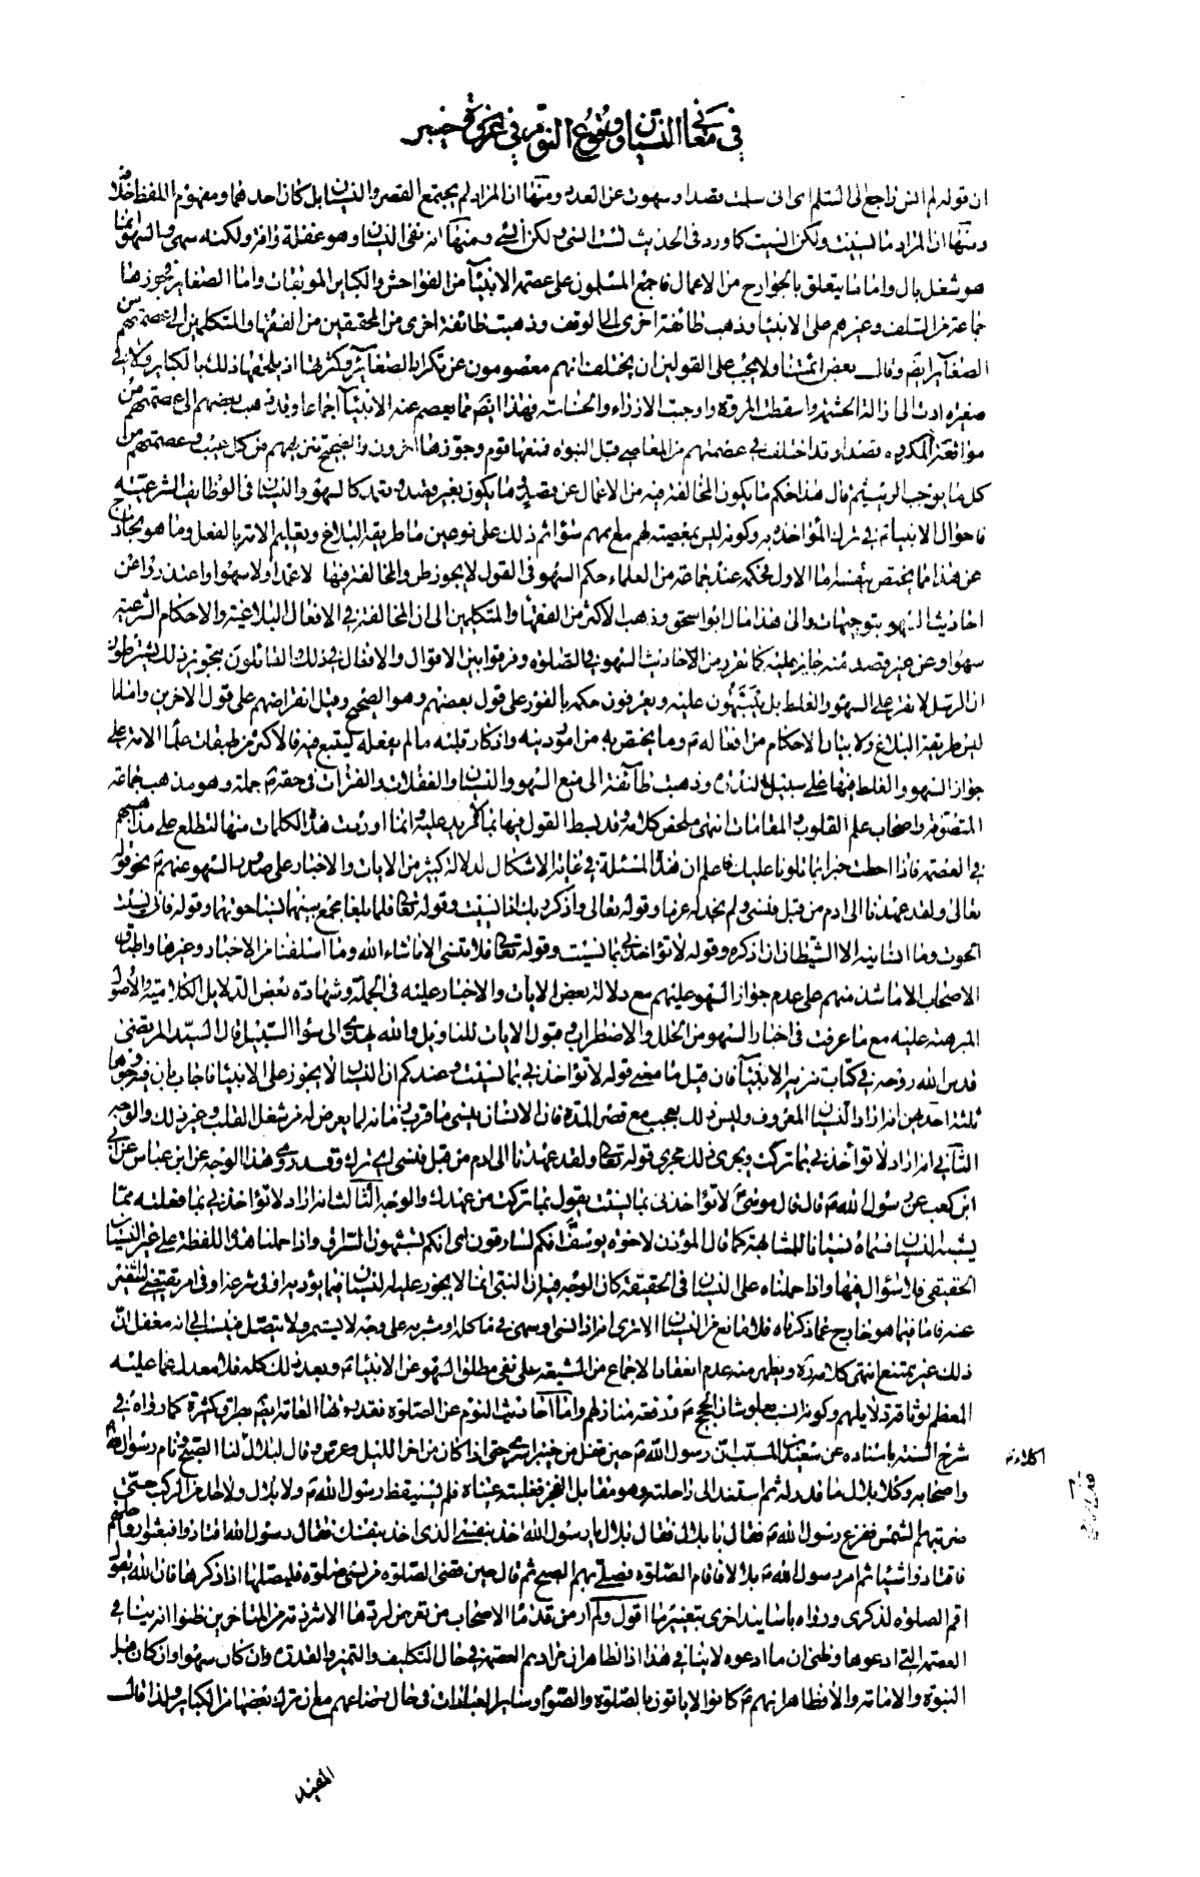 في معاني النسيان ووقوع النوم في غزوة خيبر
ان قوله لم انس راجع الى السلم اى انى سلمت قصدا وسهوت عن العدد ومنها ان المراد لم يجتمع القصر والنسيان بل كان احدهما ومفهوم اللفظ خلافه
ومنها ان المراد ما نسيت ولكن نسيت كما ورد فى الحديث لست انسى ولكن انسى ومنها انه نفى النسيان وهو غفلة وافة ولكنه سهى والسهو انما
هو شغل بال واما ما يتعلق بالجوارح من الاعمال فاجمع المسلمون على عصمة الانبياء من الفواحش والكباير الموبقات واما الصغاير فجوزها
جماعة من السلف وغيرهم على الانبياء وذهب طائفة اخرى الى الوقف وذهبت طائفة اخرى من المحققين من الفقهاء والمتكلمين الى عصمتهم من
الصغاير ايضا وقال بعض ائمتنا ولا يجب على القولين ان يختلف انهم معصومون عن تكرار الصغاير وكثرتها اذ يلحقها ذلك بالكباير ولا في
صغيرة ادت الى ازالة الحشمة واسقطت المروة واوجبت الازراء والخساسة فهذا ايضا مما يعصم عنه الانبياء اجماعا وقد ذهب بعضهم الى عصمتهم من
مواقعة المكروه قصدا وقد اختلف في عصمتهم من المعاصي قبل النبوة فمنعها قوم وجوزها اخرون والصحيح تنزيههم من كل عيب وعصمتهم من
كل ما يوجب الريب ثم قال هذا حكم ما يكون المخالفة فيه من الاعمال عن قصد وما يكون بغير قصد وتعمد كالسهو والنسيان فى الوظايف الشرعية
فاحوال الانبياء في ترك المؤاخذة به وكونه ليس بمعصية لهم مع اممهم سواء ثم ذلك على نوعين ما طريقه البلاغ وتعليم الامة بالفعل وما هو خارج
عن هذا مما يختص بنفسه اما الاول فحكمه عند جماعة من العلماء حكم السهو فى القول لا يجوز طرو المخالفة فيها لا عمدا ولا سهوا واعتذروا عن
احاديث السهو بتوجيهات والى هذا مال ابو اسحق وذهب الاكثر من الفقهاء والمتكلمين الى ان المخالفة في الافعال البلاغية والاحكام الشرعية
سهوا وعن غير قصد منه جايز عليه كما تقرر من الاحاديث السهو في الصلوة وفرقوا بين الاقوال والافعال في ذلك القائلون بتجويز ذلك يشترطون
ان الرسل لا تقر على السهو والغلط بل يتنبهون عليه ويعرفون حكمه بالفور على قول بعضهم وهو الصحيح وقبل انقراضهم على قول الاخرين واما ما
ليس طريقه البلاغ ولا بيان الاحكام من افعاله ص وما يختص به من امور دينه واذكار قلبه مالم يفعله ليتبع فيه فالاكثر من طبقات علماء الامة على
جواز السهو والغلط فيها على سبيل الندرة وذهبت طائفة الى منع السهو والنسيان والغفلات والفترات فى حقه ص جملة وهو مذهب جماعة
المتصوفة واصحاب علم القلوب والمقامات انتهى ملخص كلامه وقد بسط القول فيها بما لا مزيد عليه وانما اوردت هذه الكلمات منها لتطلع على مذاهبهم
في العصمة فاذا احطت خبرا بما تلونا عليك فاعلم ان هذه المسئلة في غاية الاشكال لدلالة كثير من الايات والاخبار على صدور السهو عنهم ع نحو قوله
تعالى ولقد عهدنا الى ادم من قبل فنسي ولم نجد له عزما وقوله تعالى واذكر ربك اذا نسيت وقوله تعالى فلما بلغا مجمع بينهما نسيا حوتهما وقوله فاني نسيت
الحوت وما انسانيه الا الشيطان ان اذكره وقوله لا تؤاخذني بما نسيت وقوله تعالى فلا تنسى الا ما شاء الله وما اسلفنا من الاخبار وغيرها واطباق
الاصحاب الا ما شذ منهم على عدم جواز السهو عليهم مع دلالة بعض الايات والاخبار عليه فى الجملة وشهادة بعض الدلايل الكلامية والاصول
المبرهنة عليه مع ما عرفت فى اخبار السهو من الخلل والاضطراب وقبول الايات للتاويل والله يهدي الى سواء السبيل قال السيد المرتضى
قدس الله روحه في كتاب تنزيه الانبياء فان قيل ما معنى قوله لا تؤاخذني بما نسيت وعندكم ان النسيان لا يجوز على الانبياء فاجاب بان فيه وجوها
ثلثة احدهن انه اراد النسيان المعروف وليس ذلك بعجب مع قصر المدة فان الانسان ينسى ما قرب زمانه لما يعرض له من شغل القلب وغير ذلك والوجه
الثاني انه اراد لا تؤاخذني بما تركت ويجري ذلك مجرى قوله تعالى ولقد عهدنا الى ادم من قبل فنسى اي ترك وقد روي هذا الوجه عن ابن عباس عن ابي
ابن كعب عن رسول الله ص قال قال موسى لا تؤاخذنى بما نسيت يقول بما تركت من عهدك والوجه الثالث انه اراد لا تؤاخذني بما فعلته مما
يشبه النسيان فسماه نسيانا للمشابهة كما قال المؤذن لاخوة يوسف انكم لسارقون اى انكم تشبهون السراق واذا حملنا هذه اللفظة على غير النسيان
الحقيقي فلا سؤال فيها واذا حملناه على النسيان فى الحقيقة كان الوجه فيه ان النبى انما لا يجوز عليه النسيان فيما يؤديه او في شرعه او فى امر يقتضي التنفير
عنه فاما فيما هو خارج عما ذكرناه فلا مانع من النسيان الا ترى انه اذا نسى او سهى في ماكله او مشربه على وجه لا يستمر ولا يتصل فينسب الى انه مغفل ان
ذلك غير ممتنع انتهى كلامه ره ويظهر منه عدم انعقاد الاجماع من الشيعة على نفى مطلق السهو عن الانبياء ع وبعد ذلك كله فلا معدل عما عليه
المعظم لوثاقة دلايلهم وكونه انسب بعلو شان الحجج ع ورفعة منازلهم واما احاديث النوم عن الصلوة فقد روتها العامة ايضا بطرق كثيرة كما رواه في
شرح السنة باسناده عن سعيد بن المسيب ان رسول الله ص حين قفل من خيبر اسرى حتى اذا كان من اخر الليل عرس وقال لبلال اكلأ لنا الصبح ونام رسول الله ص
واصحابه وكلا بلال ما قدر له ثم استند الى راحلته وهو مقابل الفجر فغلبته عيناه فلم يستيقظ رسول الله ص ولا بلال ولا احد من الركب حتى
ضربتهم الشمس ففزع رسول الله ص فقال يا بلال فقال بلال يا رسول الله اخذ بنفسي الذى اخذ بنفسك فقال رسول الله اقتادوا فبعثوا رواحلهم
فاقتادوا شيئا ثم امر رسول الله ص بلالا فاقام الصلوة فصلى بهم الصبح ثم قال حين قضى الصلوة من نسي صلوة فليصلها اذا ذكرها فان الله يقول
اقم الصلوة لذكرى ورواه باسانيد اخرى بتغيير ما اقول ولم ار من قدماء الاصحاب من تعرض لردها الا شرذمة من المتاخرين ظنوا انه ينافي
العصمة التي ادعوها وظني ان ما ادعوه لا ينافي هذا اذ الظاهر ان مرادهم العصمة في حال التكليف والتميز والقدرة وان كان سهوا وان كان قبل
النبوة والامامة والا فظاهر انهم ع كانوا لا ياتون بالصلوة والصوم وساير العبادات فى حال رضاعهم مع ان ترك بعضها من الكباير ولذا قال
المفيد